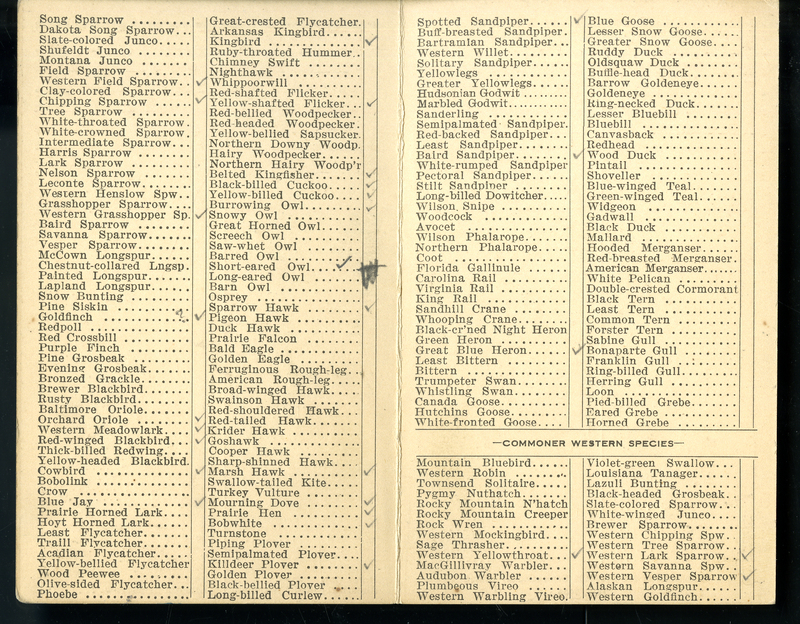 Song Sparrow
Dakota Song Sparrow
Slate-colored Junco
Shufeldt Junco
Montana Junco
Field Sparrow
Western Field Sparrow
Clay-colored Sparrow
Chipping Sparrow
Tree Sparrow
White-throated Sparrow
White-crowned Sparrow
Intermediate Sparrow
Harris Sparrow
Lark Sparrow
Nelson Sparrow
Leconte Sparrow
Western Henslow Spw.
Grasshopper Sparrow
Western Grasshopper Sp.
Baird Sparrow
Savanna Sparrow
Vesper Sparrow
McCown Longspur
Chestnut-collared Lngsp.
Painted Longspur
Lapland Longspur
Snow Bunting
Pine Siskin
Goldfinch
Redpoll
Red Crossbill
Purple Finch
Pine Grosbeak
Evening Grosbeak
Bronzed Grackle
Brewer Blackbird
Rusty Blackbird
Baltimore Oriole
Orchard Oriole
Western Meadowlark
Red-winged Blackbird
Thick-billed Redwing
Yellow-headed Blackbird
Cowbird
Bobolink
Crow
Blue Jay
Prairie Horned Lark
Hoyt Horned Lark
Least Flycatcher
Traill Flycatcher
Acadian Flycatcher
Yellow-bellied Flycatcher
Wood Peewee
Olive-sided Flycatcher
Phoebe
Great-crested Flycatcher
Arkansas Kingbird
Kingbird
Ruby-throated Hummer
Chimney Swift
Nighthawk
Whippoorwill
Red-shafted Flicker
Yellow-shafted Flicker
Red-bellied Woodpecker
Red-headed Woodpecker
Yellow-bellied Sapsucker
Northern Downy Woodp.
Hairy Woodpecker
Northern Hairy Woodp'r
Belted Kingfisher
Black-billed Cuckoo
Yellow-billed Cuckoo
Burrowing Owl
Snowy Owl
Great Horned Owl
Screech Owl
Saw-whet Owl
Barred Owl
Short-eared Owl
Long-eared Owl
Barn Owl
Osprey
Sparrow Hawk
Pigeon Hawk
Duck Hawk
Prairie Falcon
Bald Eagle
Golden Eagle
Ferruginous Rough-leg
American Rough-leg
Broad-winged Hawk
Swainson Hawk
Red-shouldered Hawk
Red-tailed Hawk
Krider Hawk
Goshawk
Cooper Hawk
Sharp-shinned Hawk
Marsh Hawk
Swallow-tailed Kite
Turkey Vulture
Mourning Dove
Prairie Hen
Bobwhite
Turnstone
Piping Plover
Semipalmated Plover
Killdeer Plover
Golden Plover
Black-bellied Plover
Long-billed Curlew
Spotted Sandpiper
Buff-breasted Sandpiper
Bartramian Sandpiper
Western Willet
Solitary Sandpiper
Yellowlegs
Greater Yellowlegs
Hudsonian Godwit
Marbled Godwit
Sanderling
Semipalmated Sandpiper
Red-backed Sandpiper
Least Sandpiper
Baird Sandpiper
White-rumped Sandpiper
Pectoral Sandpiper
Stilt Sandpiper
Long-billed Dowitcher
Wilson Snipe
Woodcock
Avocet
Wilson Phalarope
Northern Phalarope
Coot
Florida Gallinule
Carolina Rail
Virginia Rail
King Rail
Sandhill Crane
Whooping Crane
Black-cr'ned Night Heron
Green Heron
Great Blue Heron
Least Bittern
Bittern
Trumpeter Swan
Whistling Swan
Canada Goose
Hutchins Goose
White-fronted Goose
Blue Goose
Lesser Snow Goose
Greater Snow Goose
Ruddy Duck
Oldsquaw Duck
Buffle-head Duck
Barrow Goldeneye
Goldeneye
Ring-necked Duck
Lesser Bluebill
Bluebill
Canvasback
Redhead
Wood Duck
Pintail
Shoveller
Blue-winged Teal
Green-winged Teal
Widgeon
Gadwall
Black Duck
Mallard
Hooded Merganser
Red-breasted Merganser
American Merganser
White Pelican
Double-crested Cormorant
Black Tern
Least Tern
Common Tern
Forster Tern
Sabine Gull
Bonaparte Gull
Franklin Gull
Ring-billed Gull
Herring Gull
Loon
Pied-billed Grebe
Eared Grebe
Horned Grebe
—COMMONER WESTERN SPECIES—
Mountain Bluebird
Western Robin
Townsend Solitaire
Pygmy Nuthatch
Rocky Mountain N'hatch
Rocky Mountain Creeper
Rock Wren
Western Mockingbird
Sage Thrasher
Western Yellowthroat
MacGillivray Warbler
Audubon Warbler
Plumbeous Vireo
Western Warbling Vireo
Violet-green Swallow
Louisiana Tanager
Lazuli Bunting
Black-headed Grosbeak
Slate-colored Sparrow
White-winged Junco
Brewer Sparrow
Western Chipping Spw.
Western Tree Sparrow
Western Lark Sparrow
Western Savanna Spw.
Western Vesper Sparrow
Alaskan Longspur
Western Goldfinch